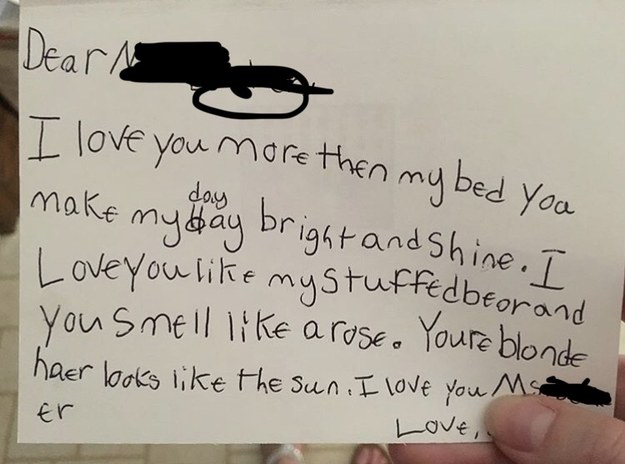 Dear M
I love you more then my bed you
day
make my bay bright and shine. I
Love you like my stuffed beor and
you smell like a rose. Youre blonde
haer looks like the sun. I love you Ms
er
Love,